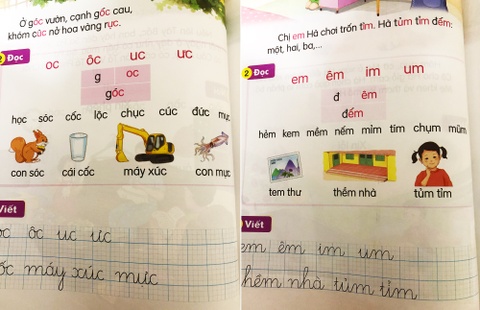 Ở gốc vườn, cạnh gốc cau,
khóm cúc nở hoa vàng rực.
2 Đọc
oc ôc uc ưc
g oc
gốc
học sóc cốc lộc chục cúc đức mực
con sóc cái cốc máy xúc con mực
Viết
oc ôc uc ưc
cốc máy xúc mực
Chị em Hà chơi trốn tìm. Hà tủm tỉm đếm:
một, hai, ba,...
2 Đọc
em êm im um
đ êm
đếm
hẻm kem mềm nếm mỉm tím chụm mũm
tem thư thềm nhà tủm tỉm
Viết
em êm im um
thềm nhà tủm tỉm